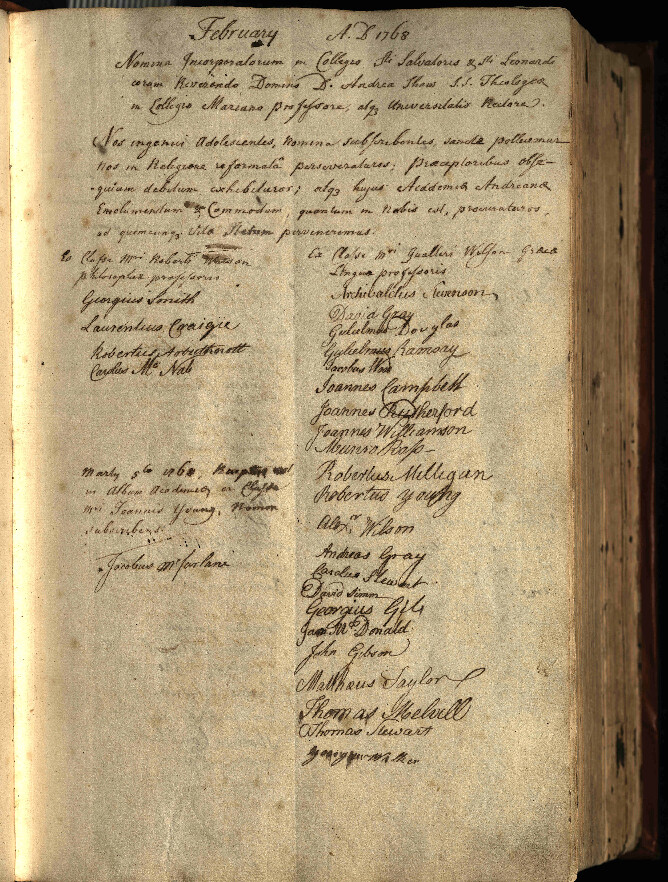 February A.D 1768
Nomina Incorporatorum in Collegio Sti Salvatoris & Sti Leonardi
coram Reverendo Domino D. Andrea Shaw S.S. Theologiæ
in Collegio Mariano professore, atq Universitatis Rectore.
Nos ingenui Adolescentes, nomina subscribentes, sancte pollicemur
nos in Religione reformatâ perseveraturos; Præceptoribus obse-
-quium debitum exhibituros; atq hujus Academiæ Andreanæ
Emolumentum & Commodum, quantum in nobis est, procuraturos,
ad quemcunq Vitæ Statum pervenerimus.
Ex Classe Mri Roberti Watson
philosophiæ professoris
Georgius Smith
Laurentius Craigie
Robertus Arbuthnott
Carolus Mc Nab
Martij 5to 1768,
in Album Academiæ ex Classe
Mri Joannis Young, Nomen
subscribens.
Jacobus Mcfarlane
Ex Classe Mri Gualteri Wilson Græcæ
Linguæ professoris
Archibaldus Stevenson
David Gray
Gulielmus Douglas
Gulielmus Ramsay
Jacobus Wood
Joannes Campbell
Joannes Rutherford
Joannes Williamson
Munro Ross
Robertus Milligan
Robertus Young
Alexr Wilson
Andreas Gray
Carolus Stewart
David Simm
Georgius Gib
Jam Mc Donald
John Gibson
Matthæus Taylor
Thomas Melvill
Thomas Stewart
Walker